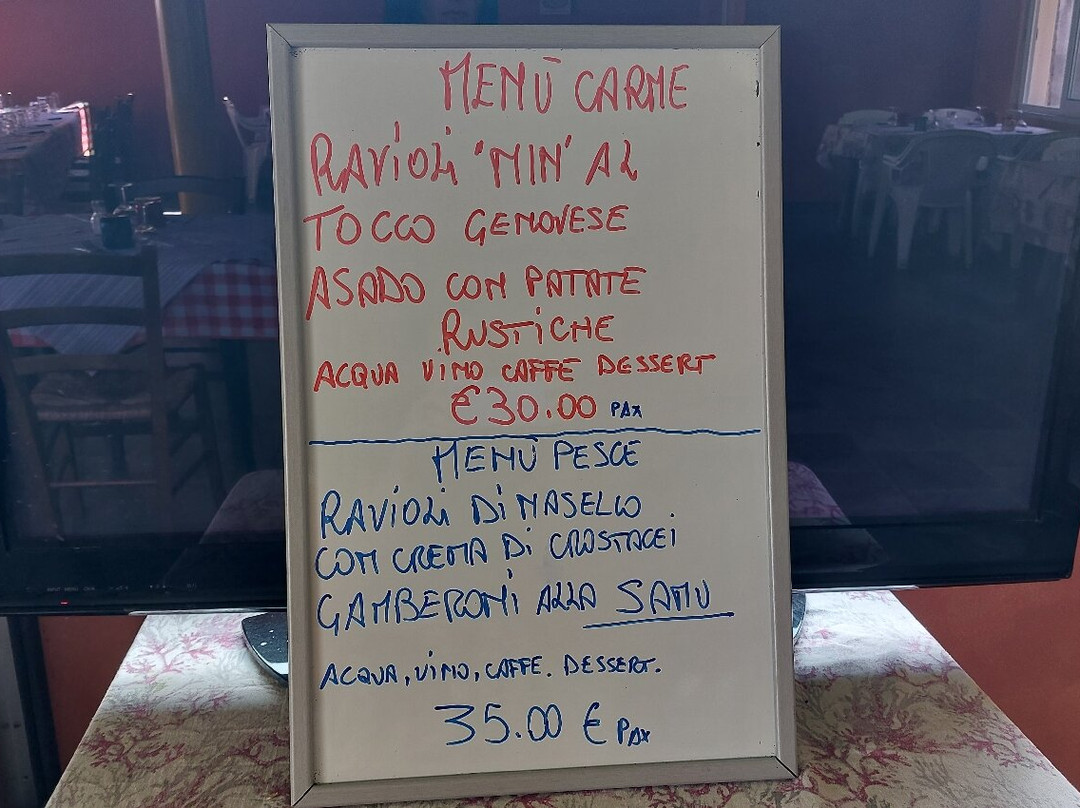 MENÙ CARNE
RAVIOLI 'MIN' AL
TOCCO GENOVESE
ASADO CON PATATE
RUSTICHE
ACQUA VINO CAFFE DESSERT
€30.00 PAX
MENÙ PESCE
RAVIOLI DI NASELLO
CON CREMA DI CROSTACEI
GAMBERONI ALLA SAMU
ACQUA, VINO, CAFFE. DESSERT.
35.00 € PAX